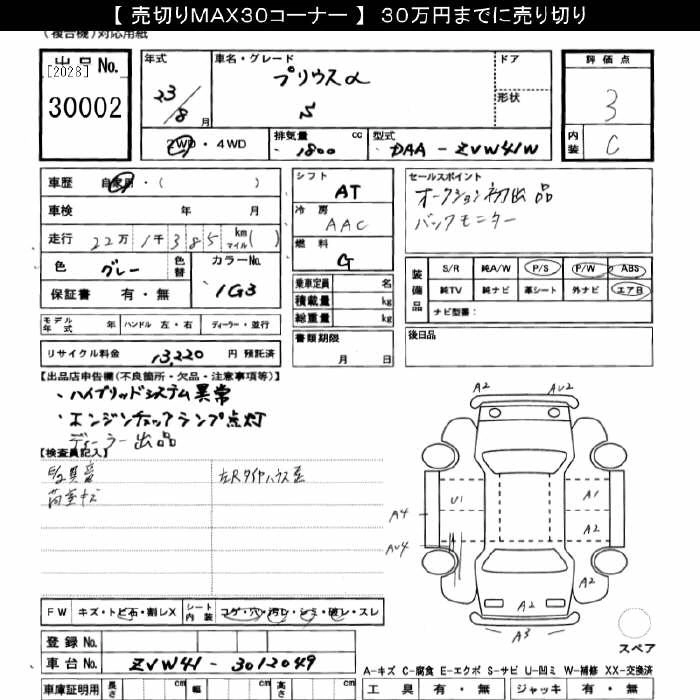 【 売切りMAX30コーナー 】 30万円までに売り切り
(複合機)対応用紙
出品No.
[2028]
30002
年式
23/8 月
車名・グレード
プリウスα
S
ドア
形状
評価点
3
内装 C
2WD・4WD
排気量 1800 cc
型式 DAA-ZVW41W
車歴 自家用・( )
車検 年 月
走行 22万1千385 km マイル( )
色 グレー 色替
カラーNo. 1G3
保証書 有・無
シフト AT
冷房 AAC
燃料 G
乗車定員 名
積載量 kg
総重量 kg
セールスポイント
オークション初出品
バックモニター
装備品
S/R 純A/W P/S P/W ABS
純TV 純ナビ 革シート 外ナビ エアB
ナビ型番:
モデル年式 年 ハンドル 左・右 ディーラー・並行
リサイクル料金 13,220 円 預託済
書類期限 月 日
後日品
【出品店申告欄(不良箇所・欠品・注意事項等)】
・ハイブリッドシステム異常
・エンジンチェックランプ点灯
ディーラー出品
【検査員記入】
荷室キズ
A2 AU2
U1 A1
A4 A2
AU4
A2 A2
A3
スペア
FW キズ・トビ石・割レX シート内装 コゲ・穴・汚レ・シミ・破レ・スレ
登録No.
車台No. ZVW41-3012049
車庫証明用 長さ cm 幅 cm 高さ cm
A-キズ C-腐食 E-エクボ S-サビ U-凹ミ W-補修 XX-交換済
工具 有・無 ジャッキ 有・無